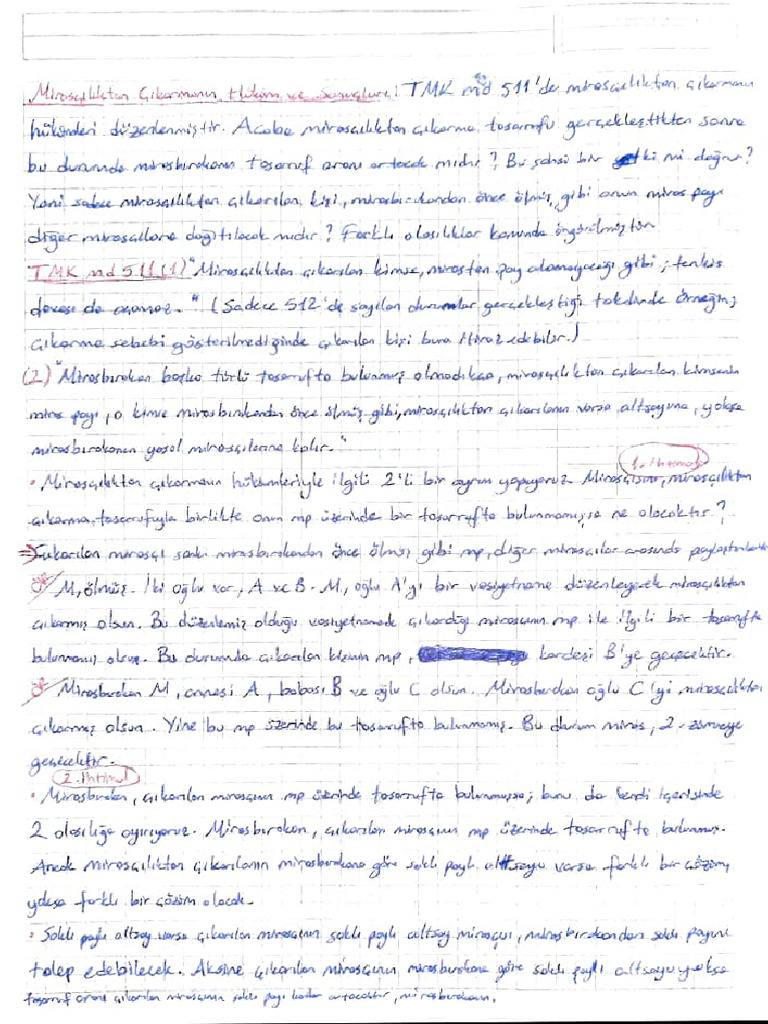 Mirasçılıktan Çıkarmanın Hüküm ve Sonuçları: TMK md 511'de mirasçılıktan çıkarmanın
hükümleri düzenlenmiştir. Acaba mirasçılıktan çıkarma tasarrufu gerçekleştikten sonra
bu durumda mirasbırakanın tasarruf oranı artacak mıdır? Bu şahsi bir etki mi doğrur?
Yani sadece mirasçılıktan çıkarılan kişi, mirasbırakandan önce ölmüş gibi onun miras payı
diğer mirasçılara dağıtılacak mıdır? Farklı olasılıklar kanunda öngörülmüştür.
"TMK md 511(1)" "Mirasçılıktan çıkarılan kimse, mirastan pay alamayacağı gibi; tenkis
davası da açamaz." (Sadece 512'de sayılan durumlar gerçekleştiği takdirde örneğin;
çıkarma sebebi gösterilmediğinde çıkarılan kişi buna itiraz edebilir.)
(2) "Mirasbırakan başka türlü tasarrufta bulunmuş olmadıkça, mirasçılıktan çıkarılan kimsenin
miras payı, o kimse mirasbırakandan önce ölmüş gibi, mirasçılıktan çıkarılanın varsa altsoyuna, yoksa
mirasbırakanın yasal mirasçılarına kalır."
1. ihtimal
• Mirasçılıktan çıkarmanın hükümleriyle ilgili 2'li bir ayrım yapıyoruz. mirasçılıktan
çıkarma tasarrufuyla birlikte onun mp üzerinde bir tasarrufta bulunmamışsa ne olacaktır?
⇒ Çıkarılan mirasçı sanki mirasbırakandan önce ölmüş gibi mp, diğer mirasçılar arasında paylaştırılacaktır
M, ölmüş. İki oğlu var, A ve B. M, oğlu A'yı bir vasiyetname düzenleyerek mirasçılıktan
çıkarmış olsun. Bu düzenlemiş olduğu vasiyetnamede çıkardığı mirasçının mp ile ilgili bir tasarrufta
bulunmamış olsun. Bu durumda çıkarılan kişinin mp, kardeşi B'ye geçecektir.
Mirasbırakan M, annesi A, babası B ve oğlu C olsun. Mirasbırakan oğlu C'yi mirasçılıktan
çıkarmış olsun. Yine bu mp üzerinde bu tasarrufta bulunmamış. Bu durum miras, 2. zümreye
geçecektir.
2. ihtimal
• Mirasbırakan, çıkarılan mirasçının mp üzerinde tasarrufta bulunmuşsa; bunu da kendi içerisinde
2 olasılığa ayırıyoruz. Mirasbırakan, çıkarılan mirasçının mp üzerinde tasarrufta bulunmuş.
Ancak mirasçılıktan çıkarılanın mirasbırakana göre saklı paylı altsoyu varsa farklı bir çözüm,
yoksa farklı bir çözüm olacak.
• Saklı paylı altsoy varsa çıkarılan mirasçının saklı paylı altsoy mirasçısı, mirasbırakandan saklı payını
talep edebilecek. Aksine çıkarılan mirasçının mirasbırakana göre saklı paylı altsoyu yoksa
tasarruf oranı çıkarılan mirasçının saklı payı kadar artacaktır, mirasbırakanın.